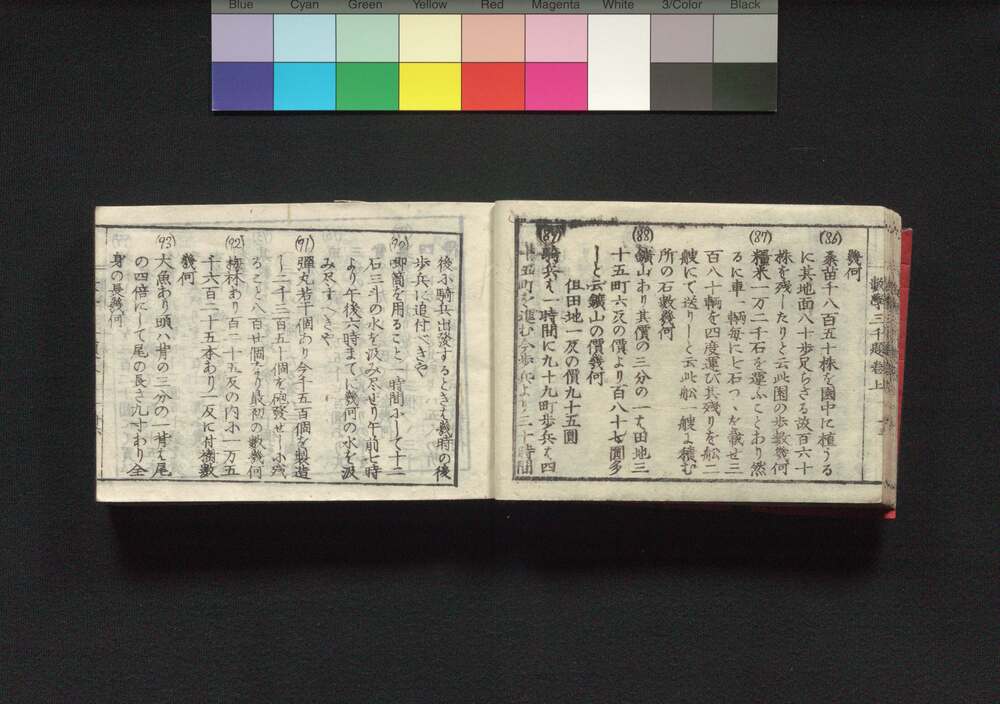 Blue Cyan Green Yellow Red Magenta White 3/Color Black
數學三千題 卷上
幾何
(86) 桑苗千八百五十株を園中に植うる
に其地面八十歩足らさる故百六十
株を残したりと云此園の歩数幾何
(87) 糧米一万二千石を運ふことあり然
るに車一輌毎に七石つゝを載せ三
百八十輌を四度運び其残りを舩二
艘にて送りしと云此舩一艘よ積む
所の石數幾何
(88) 鑛山あり其價の三分の一は田地三
十五町六反の價より百八十七圓多
しと云鑛山の價幾何
但田地一反の價九十五圓
(89) 騎兵は一時間に九十九町歩兵は四
十五町を進む今歩兵より三十時間
後に騎兵出發するときは幾時の後
歩兵に追付べきや
(90) 喞筒を用ること一時間にして十二
石三斗の水を汲み尽せり午前七時
より午後六時まてに幾何の水を汲
み尽すへきや
(91) 彈丸若干個あり今千五百個を製造
し二千三百五十個を砲發せしに残
ること八百廿個なり最初の數幾何
(92) 梅林あり百二十五反の内に一万五
千六百二十五本あり一反に付樹數
幾何
(93) 大魚あり頭ハ背の三分の一背は尾
の四倍にして尾の長さ九寸あり全
身の長幾何